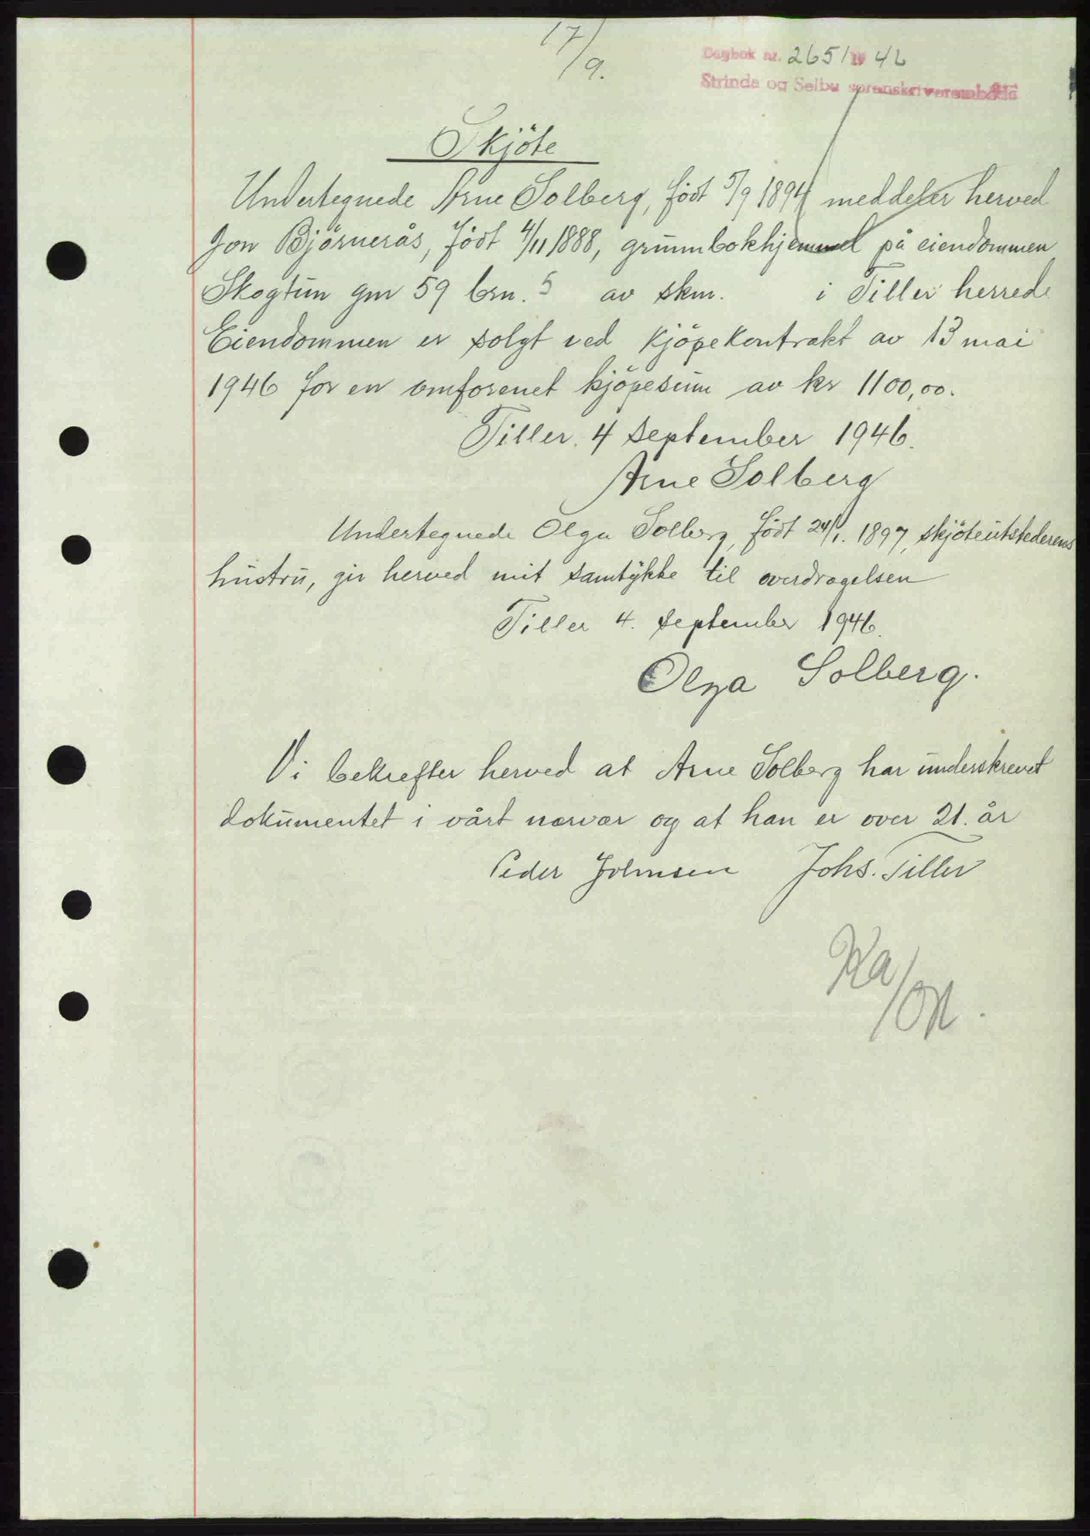 17/9.
Dagbok nr. 2651 1946
Strinda og Selbu sorenskriverembede
Skjöte
Undertegnede Arne Solberg, födt 5/9 1894 meddeler herved
Jon Björnerås, födt 4/11 1888, grunnbokhjemmel på eiendommen
Skogtun gnr 59 brn. 5 av skm. i Tiller herred
Eiendommen er solgt ved kjöpekontrakt av 13 mai
1946 for en omforenet kjöpesum av kr 1100,00.
Tiller. 4 september 1946.
Arne Solberg
Undertegnede Olga Solberg, födt 24/1. 1897, skjöteutstederens
hustru, gir herved mit samtykke til overdragelsen
Tiller 4. september 1946.
Olga Solberg.
Vi bekrefter herved at Arne Solberg har underskrevet
dokumentet i vårt nærvær og at han er over 21. år
Peder Johnsen Johs. Tiller